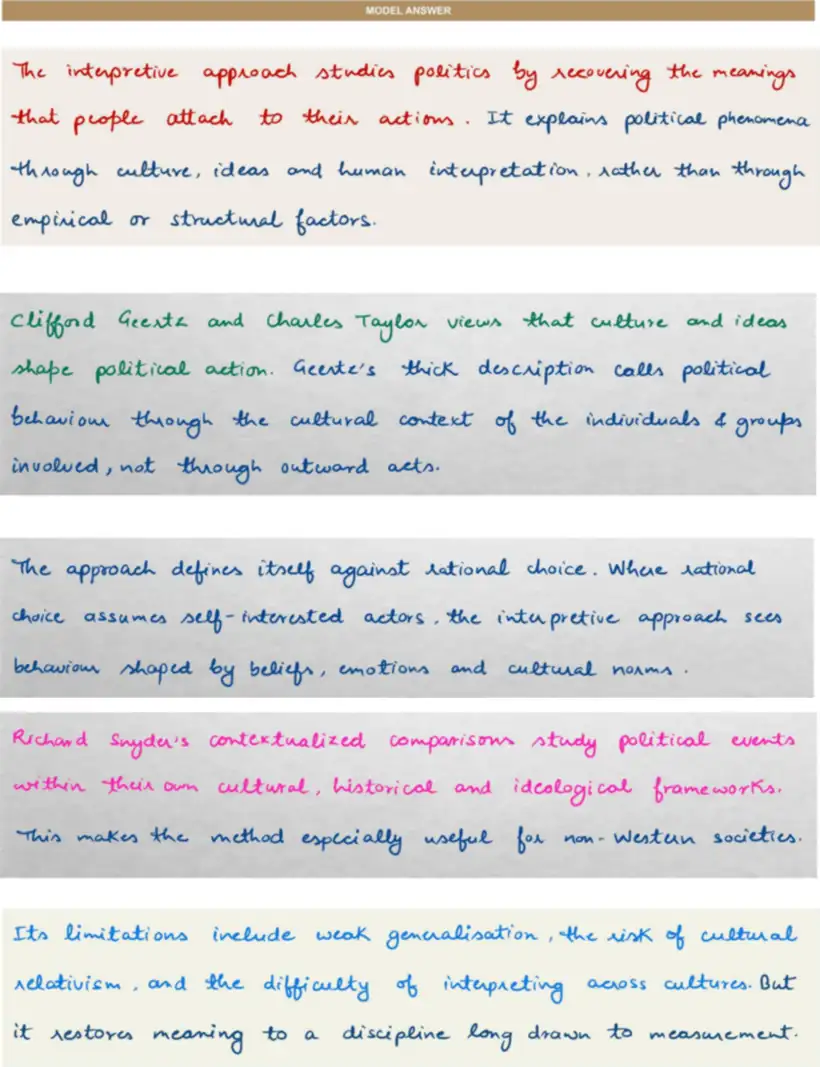 MODEL ANSWER
The interpretive approach studies politics by recovering the meanings
that people attach to their actions. It explains political phenomena
through culture, ideas and human interpretation, rather than through
empirical or structural factors.
Clifford Geertz and Charles Taylor views that culture and ideas
shape political action. Geertz's thick description calls political
behaviour through the cultural context of the individuals & groups
involved, not through outward acts.
The approach defines itself against rational choice. Where rational
choice assumes self-interested actors, the interpretive approach sees
behaviour shaped by beliefs, emotions and cultural norms.
Richard Snyder's contextualized comparisons study political events
within their own cultural, historical and ideological frameworks.
This makes the method especially useful for non-Western societies.
Its limitations include weak generalisation, the risk of cultural
relativism, and the difficulty of interpreting across cultures. But
it restores meaning to a discipline long drawn to measurement.